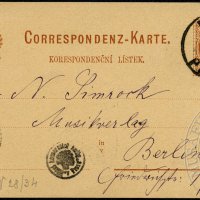 CORRESPONDENZ-KARTE.
KORESPONDENČNÍ LÍSTEK.
N. Simrock
Musikverlag
in
Berlin
28/34